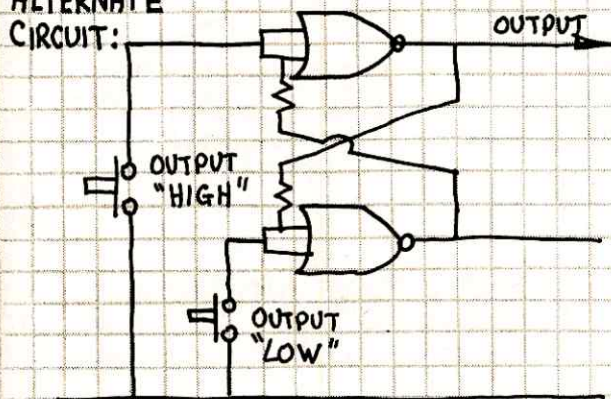 ALTERNATE
CIRCUIT:
OUTPUT
OUTPUT
"HIGH"
OUTPUT
"LOW"